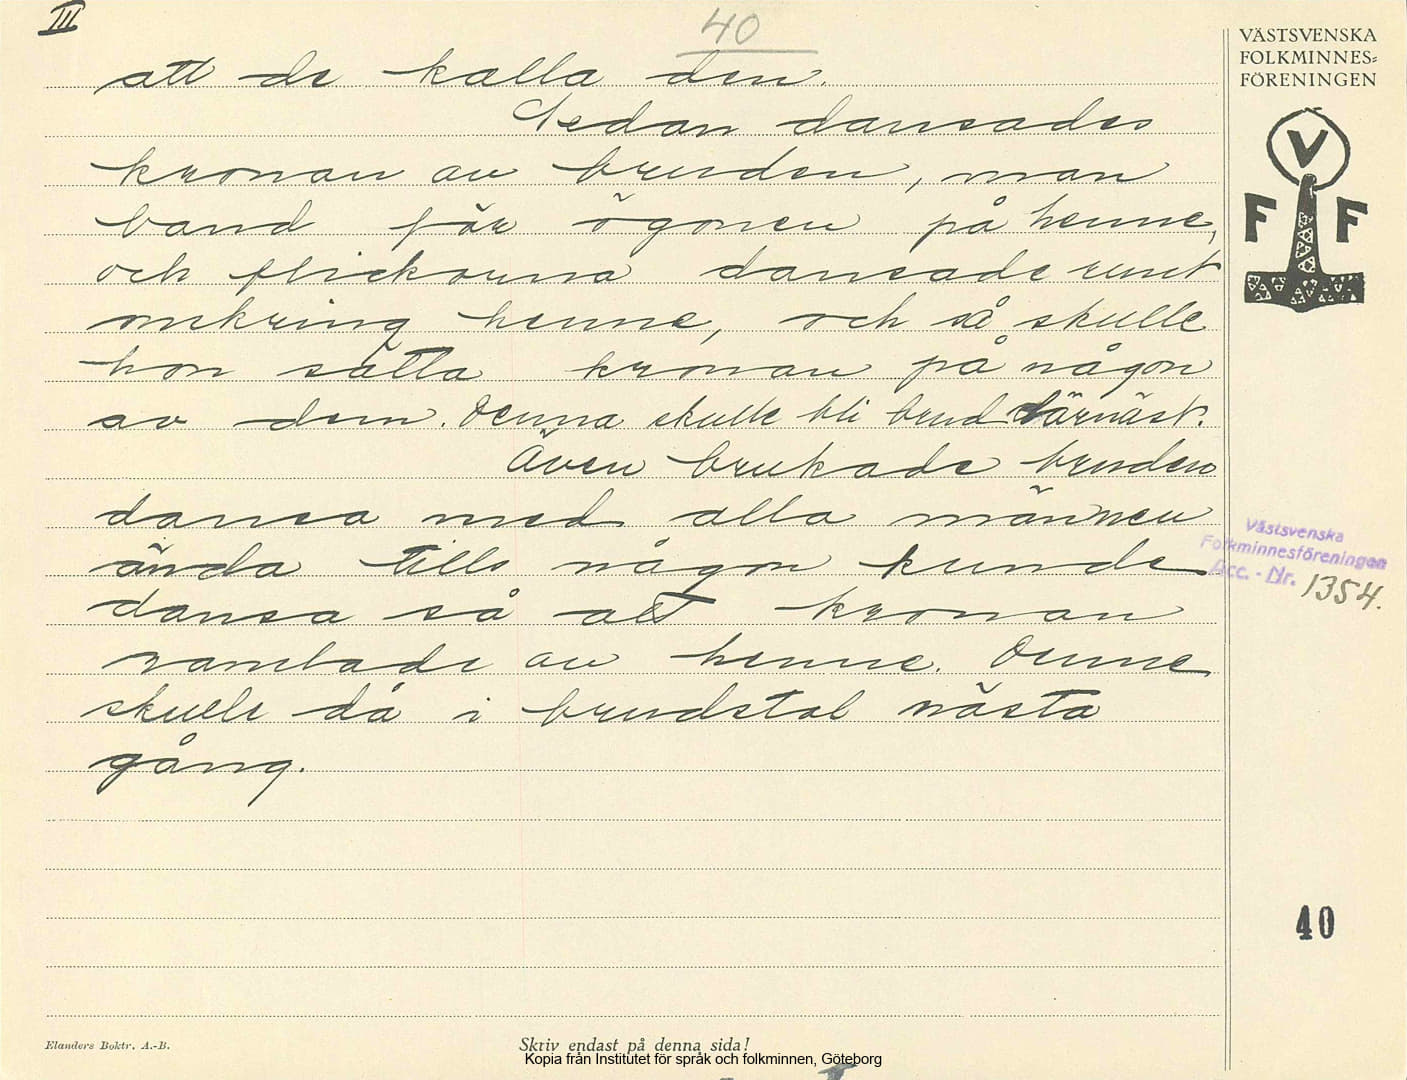 III
40
VÄSTSVENSKA
FOLKMINNES=
FÖRENINGEN
V
F F
att de kalla den.
Sedan dansades
kronan av bruden, man
band för ögonen på henne,
och flickorna dansade runt
omkring henne, och så skulle
hon sätta kronan på någon
av dem. Denna skulle bli brud därnäst.
Även brukade bruden
dansa med alla männen
ända tills någon kunde
dansa så att kronan
ramlade av henne. Denne
skulle då i brudstol nästa
gång.
Västsvenska
Folkminnesföreningen
Acc. - Nr. 1354.
40
Elanders Boktr. A.-B.
Skriv endast på denna sida!
Kopia från Institutet för språk och folkminnen, Göteborg